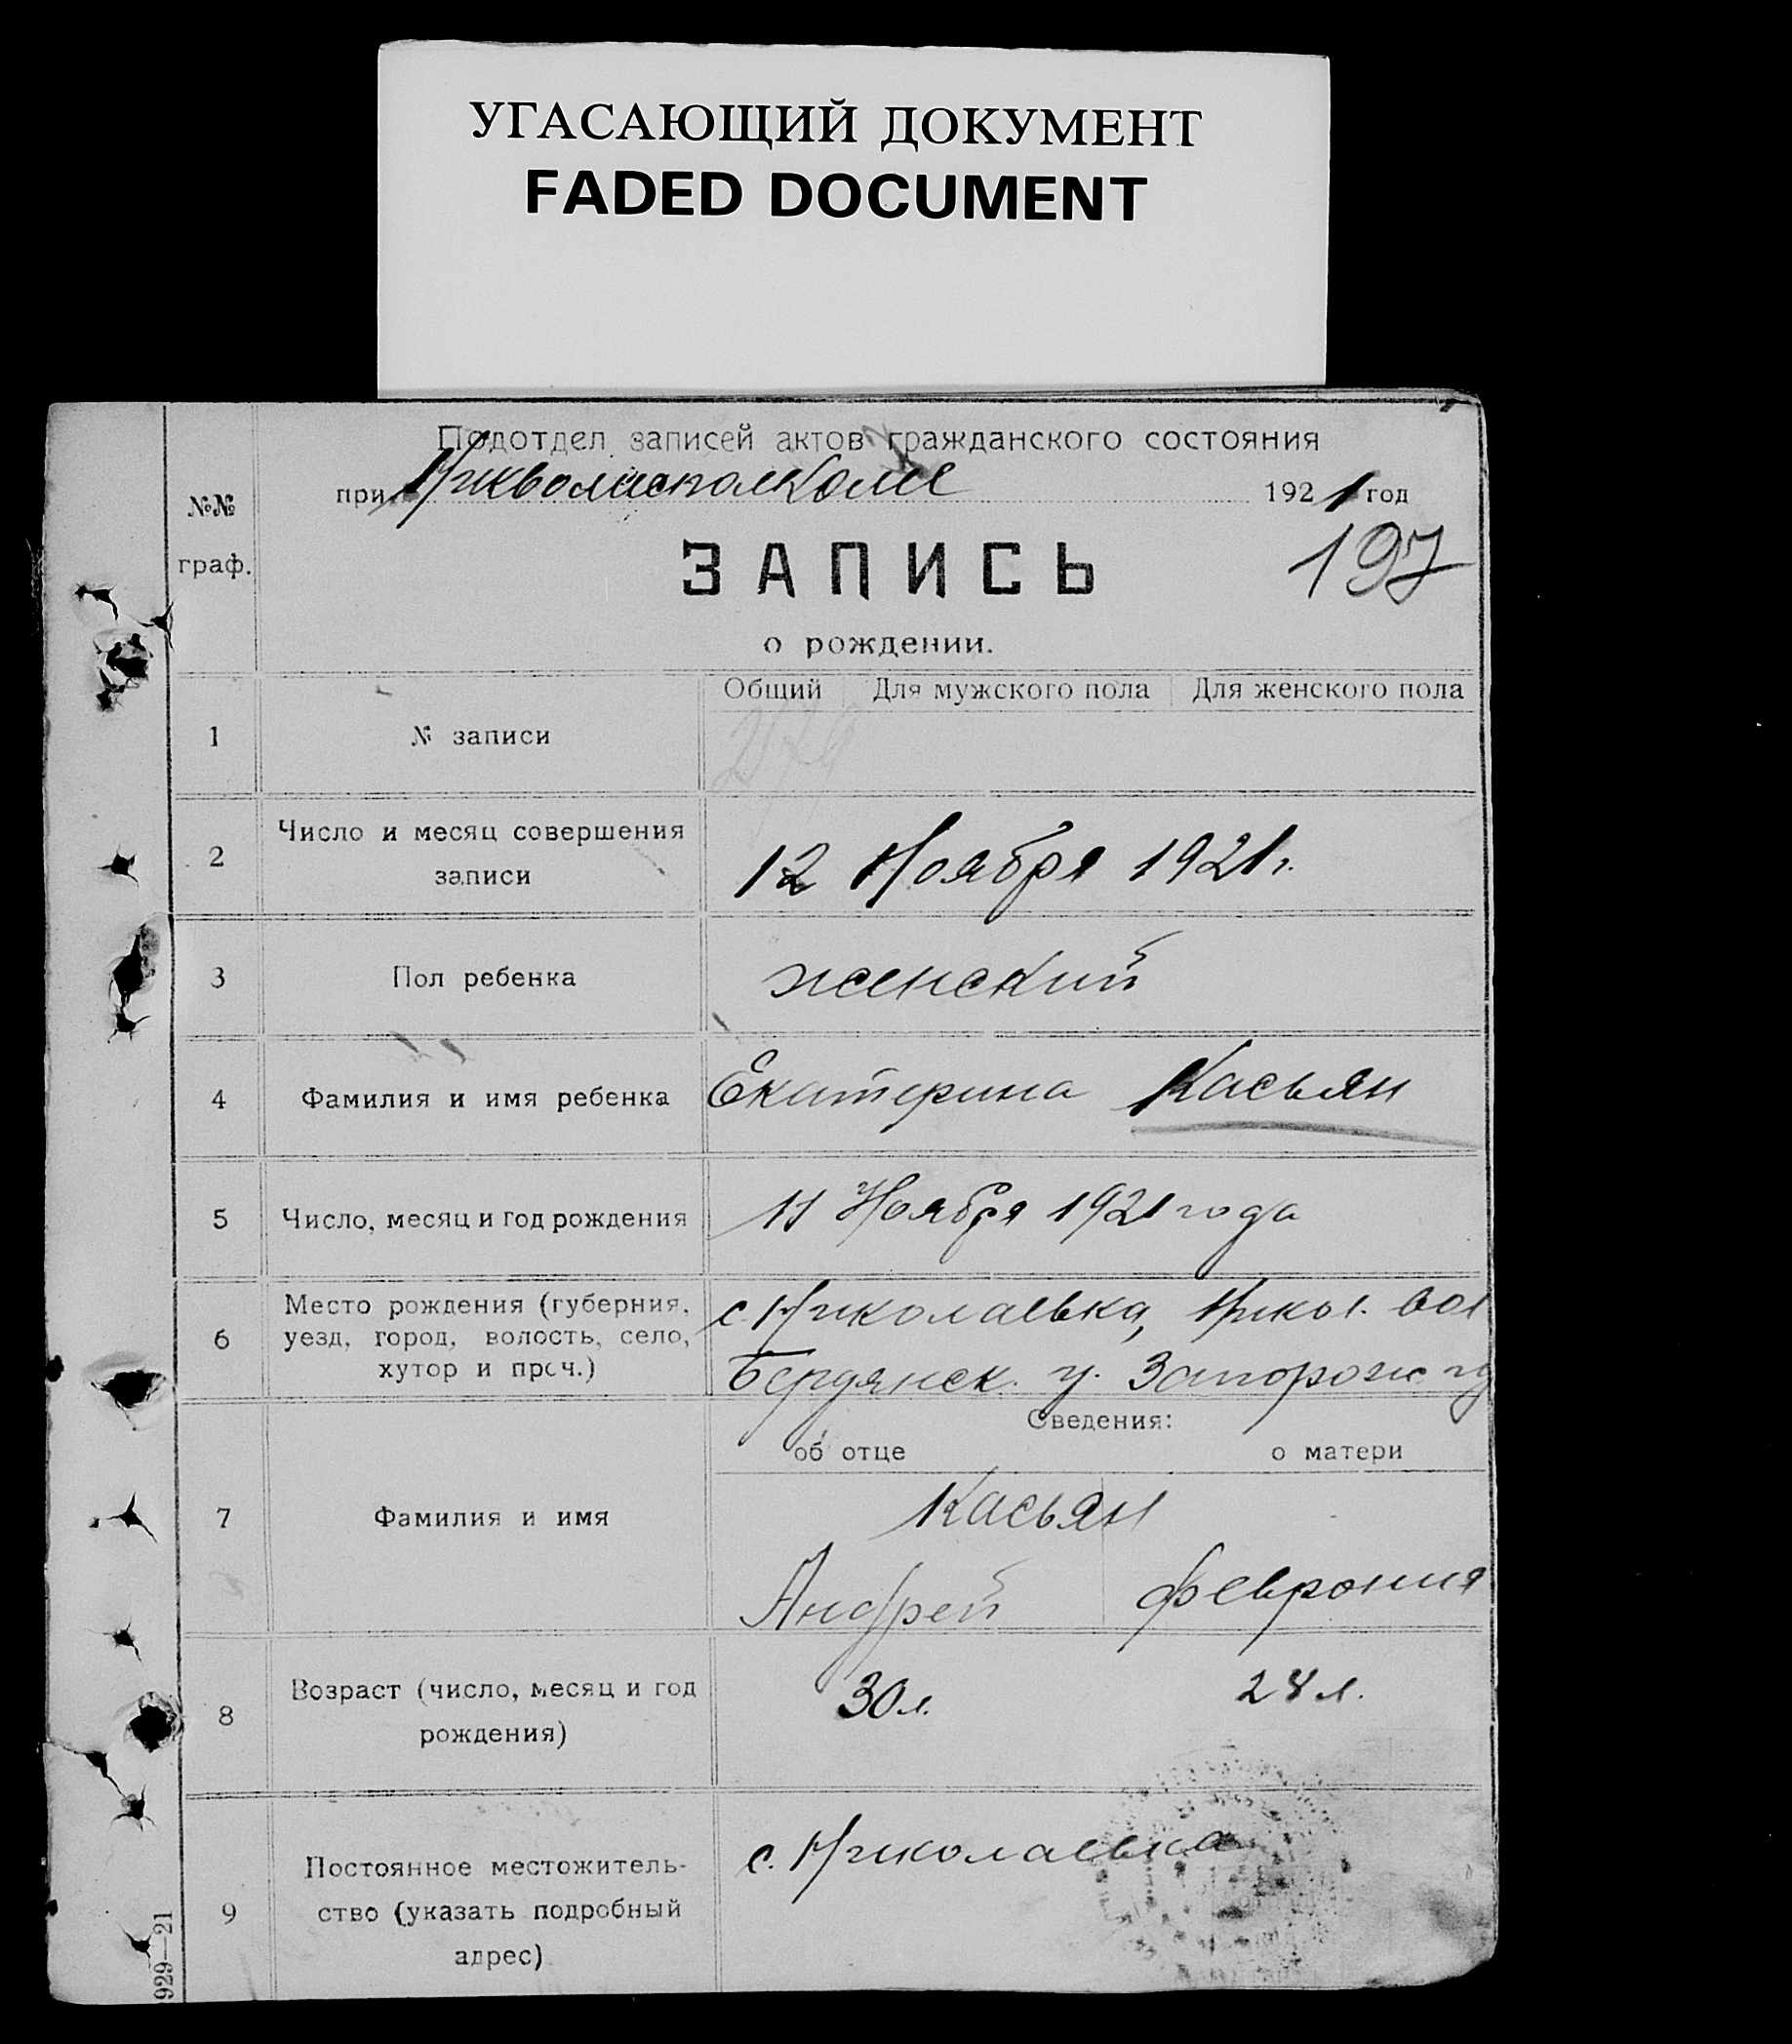 УГАСАЮЩИЙ ДОКУМЕНТ
FADED DOCUMENT
Подотдел записей актов гражданского состояния
при Никволисполкоме 1921 год
№№ граф.
197
ЗАПИСЬ
о рождении.
Общий Для мужского пола Для женского пола
1 № записи
2 Число и месяц совершения записи
12 Ноября 1921 г.
3 Пол ребенка женский
4 Фамилия и имя ребенка Екатерина Касьян
5 Число, месяц и год рождения 11 Ноября 1921 года
6 Место рождения (губерния,
уезд, город, волость, село,
хутор и проч.)
с. Николаевка, Никол. вол
Бердянск. у. Запорож гу
Сведения:
об отце о матери
7 Фамилия и имя
Касьян
Андрей Феврония
8 Возраст (число, месяц и год
рождения)
30 л. 28 л.
9 Постоянное местожитель-
ство (указать подробный
адрес)
с. Николаевка
929—21